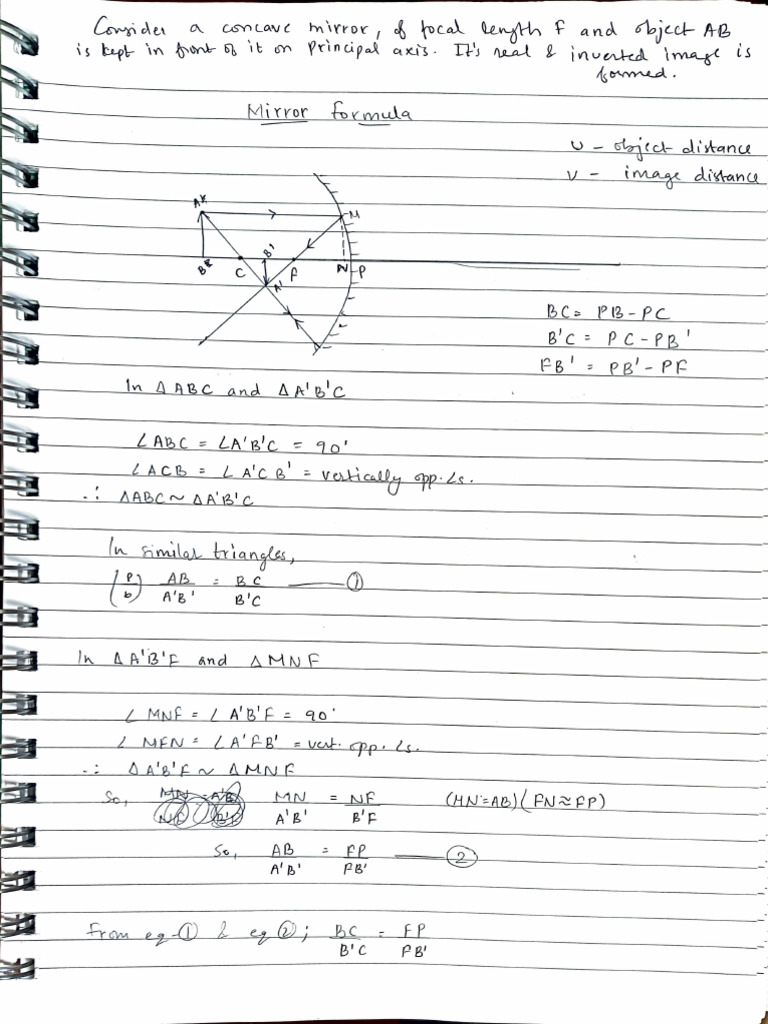 Consider a concave mirror, of focal length F and object AB
is kept in front of it on principal axis. It's real & inverted image is
formed.
Mirror formula
u - object distance
v - image distance
A
M
B
C
B'
F
N
P
A'
BC = PB - PC
B'C = PC - PB'
FB' = PB' - PF
In △ABC and △A'B'C
∠ABC = ∠A'B'C = 90°
∠ACB = ∠A'CB' = vertically opp. ∠s.
∴ △ABC ~ △A'B'C
In similar triangles,
(P/b) AB/A'B' = BC/B'C —— ①
In △A'B'F and △MNF
∠MNF = ∠A'B'F = 90°
∠MFN = ∠A'FB' = vert. opp. ∠s.
∴ △A'B'F ~ △MNF
So, MN/A'B' = NF/B'F (MN=AB) (FN≈FP)
So, AB/A'B' = FP/FB' —— ②
From eq ① & eq ②; BC/B'C = FP/FB'